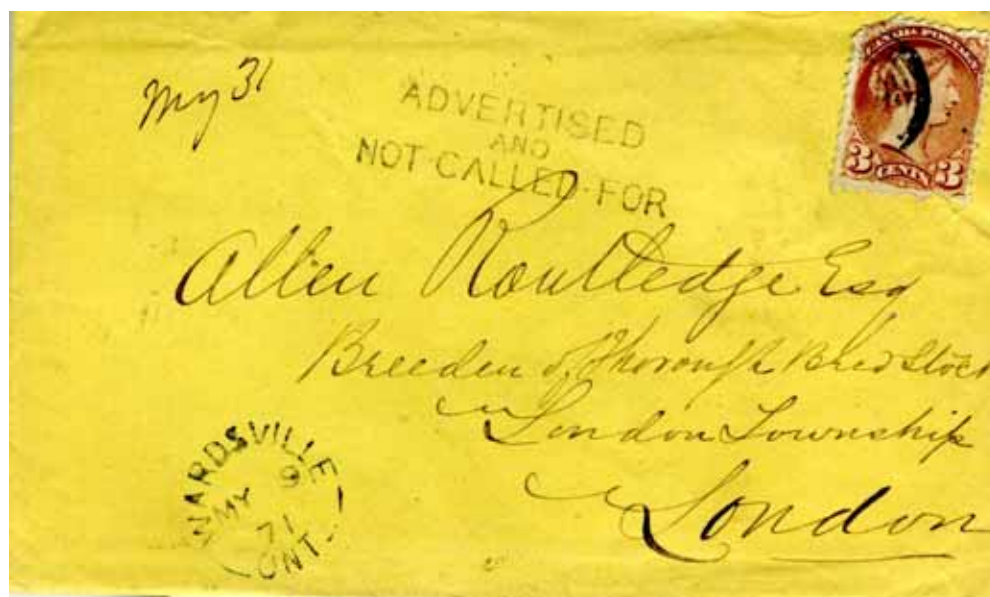 My 31
ADVERTISED
AND
NOT·CALLED·FOR
CANADA POSTAGE
3 CENTS 3
Allen Routledge Esq
Breeder of Thorough Bred Stock
London Township
London
WARDSVILLE
9
MY
71
ONT.